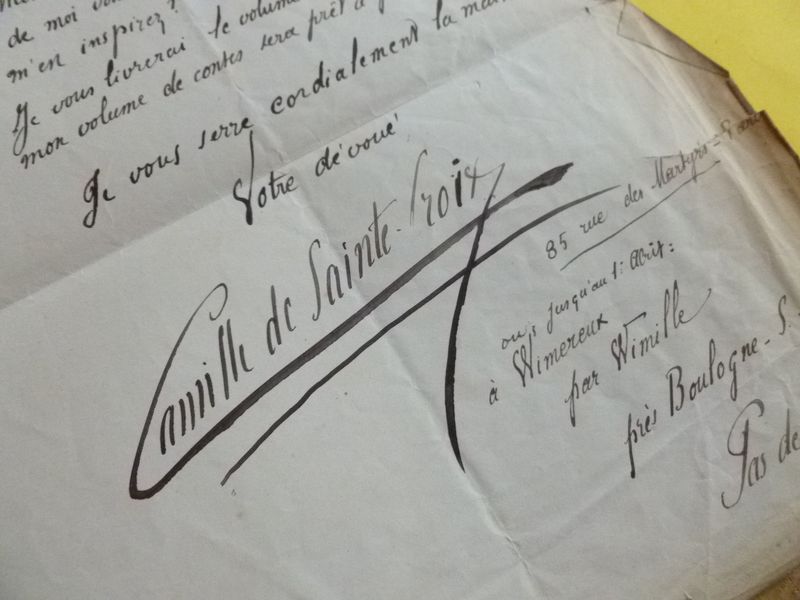 de moi vo
m'en inspirez?
Je vous livrerai le volume
mon volume de contes sera prêt à
Je vous serre cordialement la main
Votre dévoué
Camille de Sainte-Croix
85 rue des Martyrs = Paris
ou, jusqu'au 1: Août:
à Wimereux
par Wimille
près Boulogne-S.
Pas de